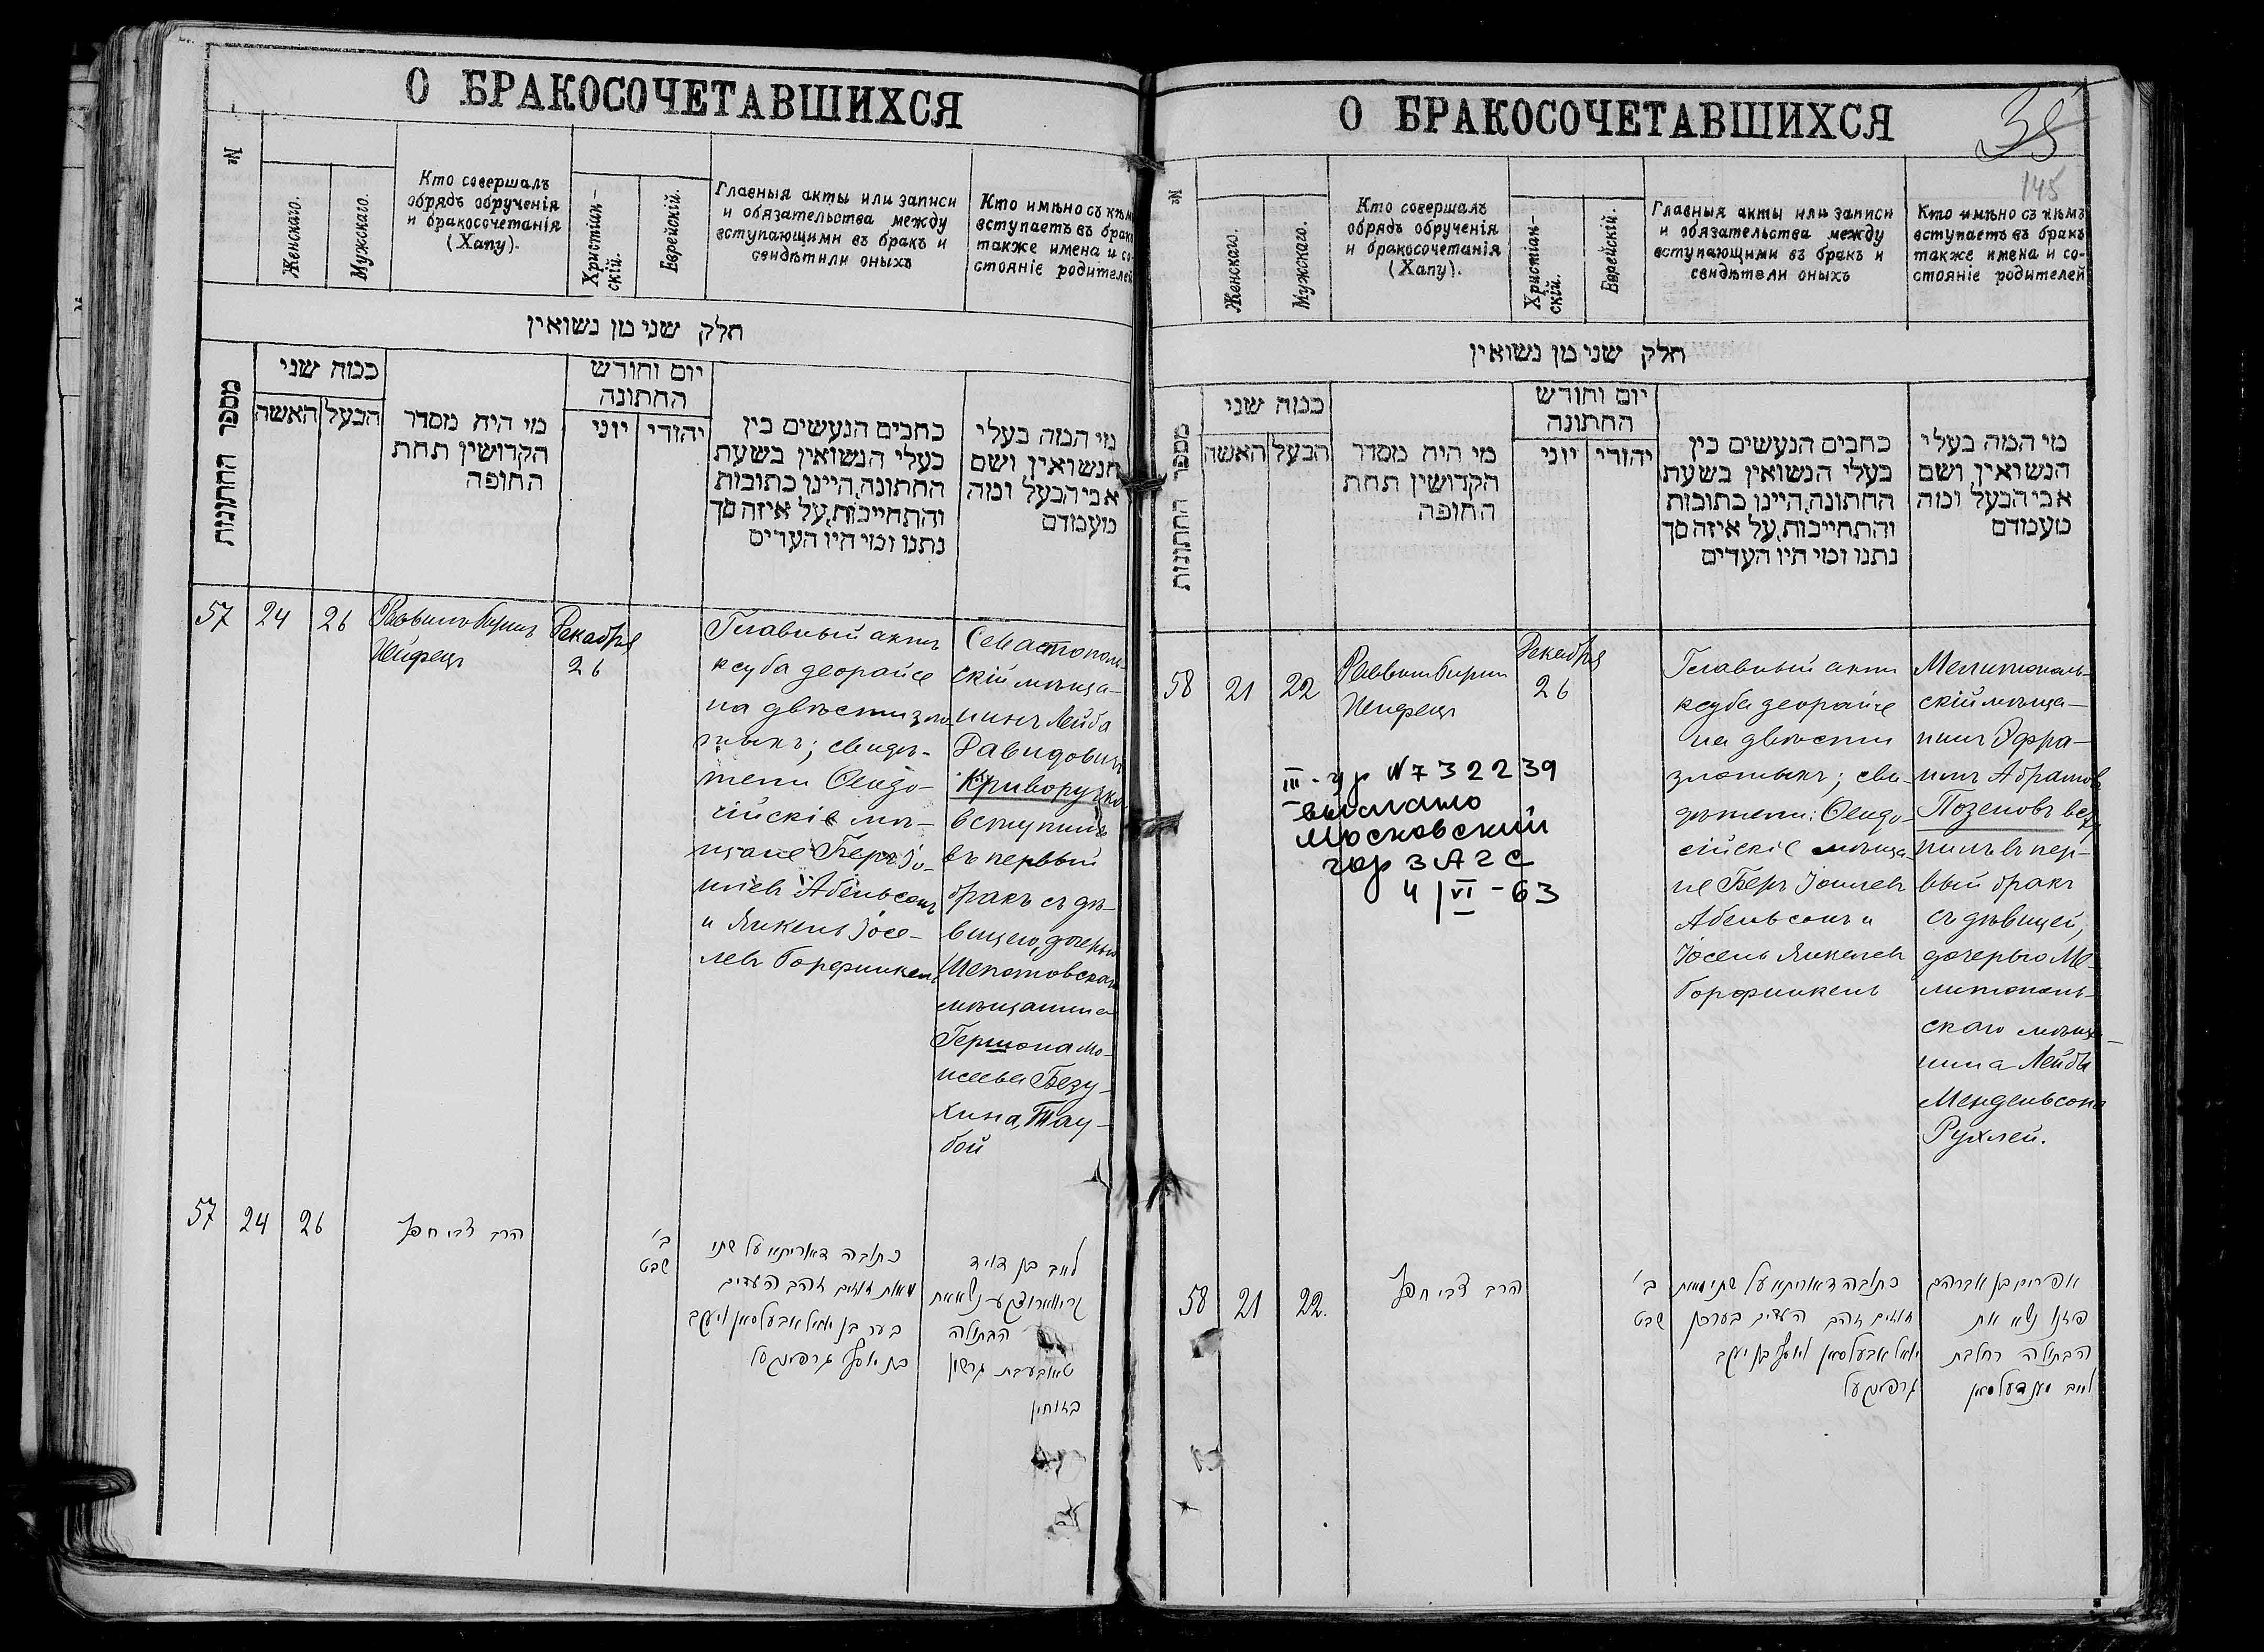 О БРАКОСОЧЕТАВШИХСЯ
№
Женскаго.
Мужскаго.
Кто совершалъ
обрядъ обрученія
и бракосочетанія
(Хапу).
Христіан-
скій.
Еврейскій.
Главныя акты или записи
и обязательства между
вступающими въ бракъ и
свидѣтили оныхъ
Кто имѣно съ кѣмъ
вступаетъ въ бракъ
также имена и со-
стояніе родителей
חלק שני מן נשואין
מספר החתונות
כמה שני
האשה
הבעל
מי היה מסדר
הקדושין תחת
החופה
יום וחודש
החתונה
יוני
יהודי
כתבים הנעשים בין
בעלי הנשואין בשעת
החתונה, היינו כתובות
והתחייבות, על איזה סך
נתנו ומי היו העדים
מי המה בעלי
הנשואין ושם
אבי הבעל ומה
מעמדם
57
24
26
Раввинъ Гиршъ
Хейфецъ
Декабря
26
Главный актъ
ксуба деорайсе
на двѣсти зло-
тыхъ; свидѣ-
тели Ѳеодо-
сійскіе мѣ-
щане Беръ Іо-
илевъ Абельсонъ
и Янкель Іосе-
левъ Горфинкель
Севастополь-
скій мѣща-
нинъ Лейба
Давидовичъ
Криворучко
вступилъ
въ первый
бракъ съ дѣ-
вицею, дочерью
Шепетовскаго
мѣщанина
Гершона Мо-
исеева Безу-
хина, Тау-
бой
57
24
26
הרב צבי חפץ
ב׳
שבט
כתובה דאוריתא על שתי
מאות זוזים זהב העדים
בער בן יואל אבעלסאן ויעקב
בן יוסף גרפינקל
לייב בן דויד
קריווארוצקע נשא את
הבתולה
טאובע בת גרשון
בזוחין
О БРАКОСОЧЕТАВШИХСЯ
35
145
№
Женскаго.
Мужскаго.
Кто совершалъ
обрядъ обрученія
и бракосочетанія
(Хапу).
Христіан-
скій.
Еврейскій.
Главныя акты или записи
и обязательства между
вступающими въ бракъ и
свидѣтели оныхъ
Кто имѣно съ кѣмъ
вступаетъ въ бракъ
также имена и со-
стояніе родителей
חלק שני מן נשואין
מספר החתונות
כמה שני
האשה
הבעל
מי היה מסדר
הקדושין תחת
החופה
יום וחודש
החתונה
יוני
יהודי
כתבים הנעשים בין
בעלי הנשואין בשעת
החתונה, היינו כתובות
והתחייבות, על איזה סך
נתנו ומי היו העדים
מי המה בעלי
הנשואין ושם
אבי הבעל ומה
מעמדם
58
21
22
Раввинъ Гиршъ
Хейфецъ
Декабря
26
III-ур №732239
выслано
Московский
гор ЗАГС
4/VI-63
Главный актъ
ксуба деорайсе
на двѣсти
злотыхъ; сви-
дѣтели: Ѳеодо-
сійскіе мѣща-
не Беръ Іоилевъ
Абельсонъ и
Іосель Янкелевъ
Горфинкель
Мелитополь-
скій мѣща-
нинъ Эфра-
имъ Абрамовъ
Позеновъ всту-
пилъ въ пер-
вый бракъ
съ дѣвицей,
дочерью Ме-
литополь-
скаго мѣща-
нина Лейбы
Мендельсона
Рухлей.
58
21
22.
הרב צבי חפץ
ב׳
שבט
כתובה דאוריתא על שתי מאות
זוזים זהב העדים בער בן
יואל אבעלסאן ויוסף בן יעקב
גרפינקל
אפרים בן אברהם
פוזנו נשא את
הבתולה רחל בת
לייב מענדעלסאן